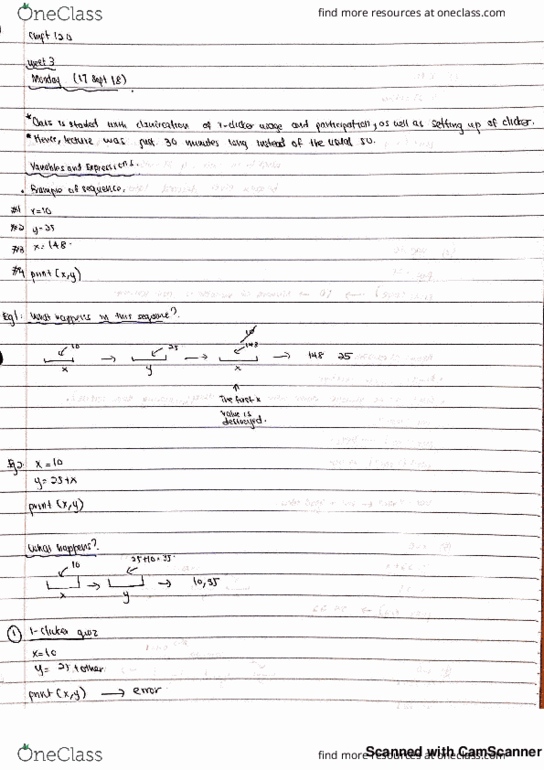 OneClass
find more resources at oneclass.com
Cmpt 120
week 3
Monday (17 Sept 18).
*Class is started with clarification of i-clicker usage and participation, as well as setting up of clicker.
*Hence, lecture was just 30 minutes long instead of the usual 50.
Variables and Expressions.
• Example of sequence.
#1 x=10
#2 y=25
#3 x=148
#4 print (x,y)
Eg1: What happens in this sequence?
10 25 10 148
→ → → 148 25
x y x
↑
The first x
value is
destroyed.
Eg2: x=10
y=25+x
print (x,y)
What happens?
10 25+10=35
→ → 10,35
x y
① i-clicker quiz
x=10
y= 25+other
print (x,y) → error
OneClass
find more resources at oneclass.com
Scanned with CamScanner